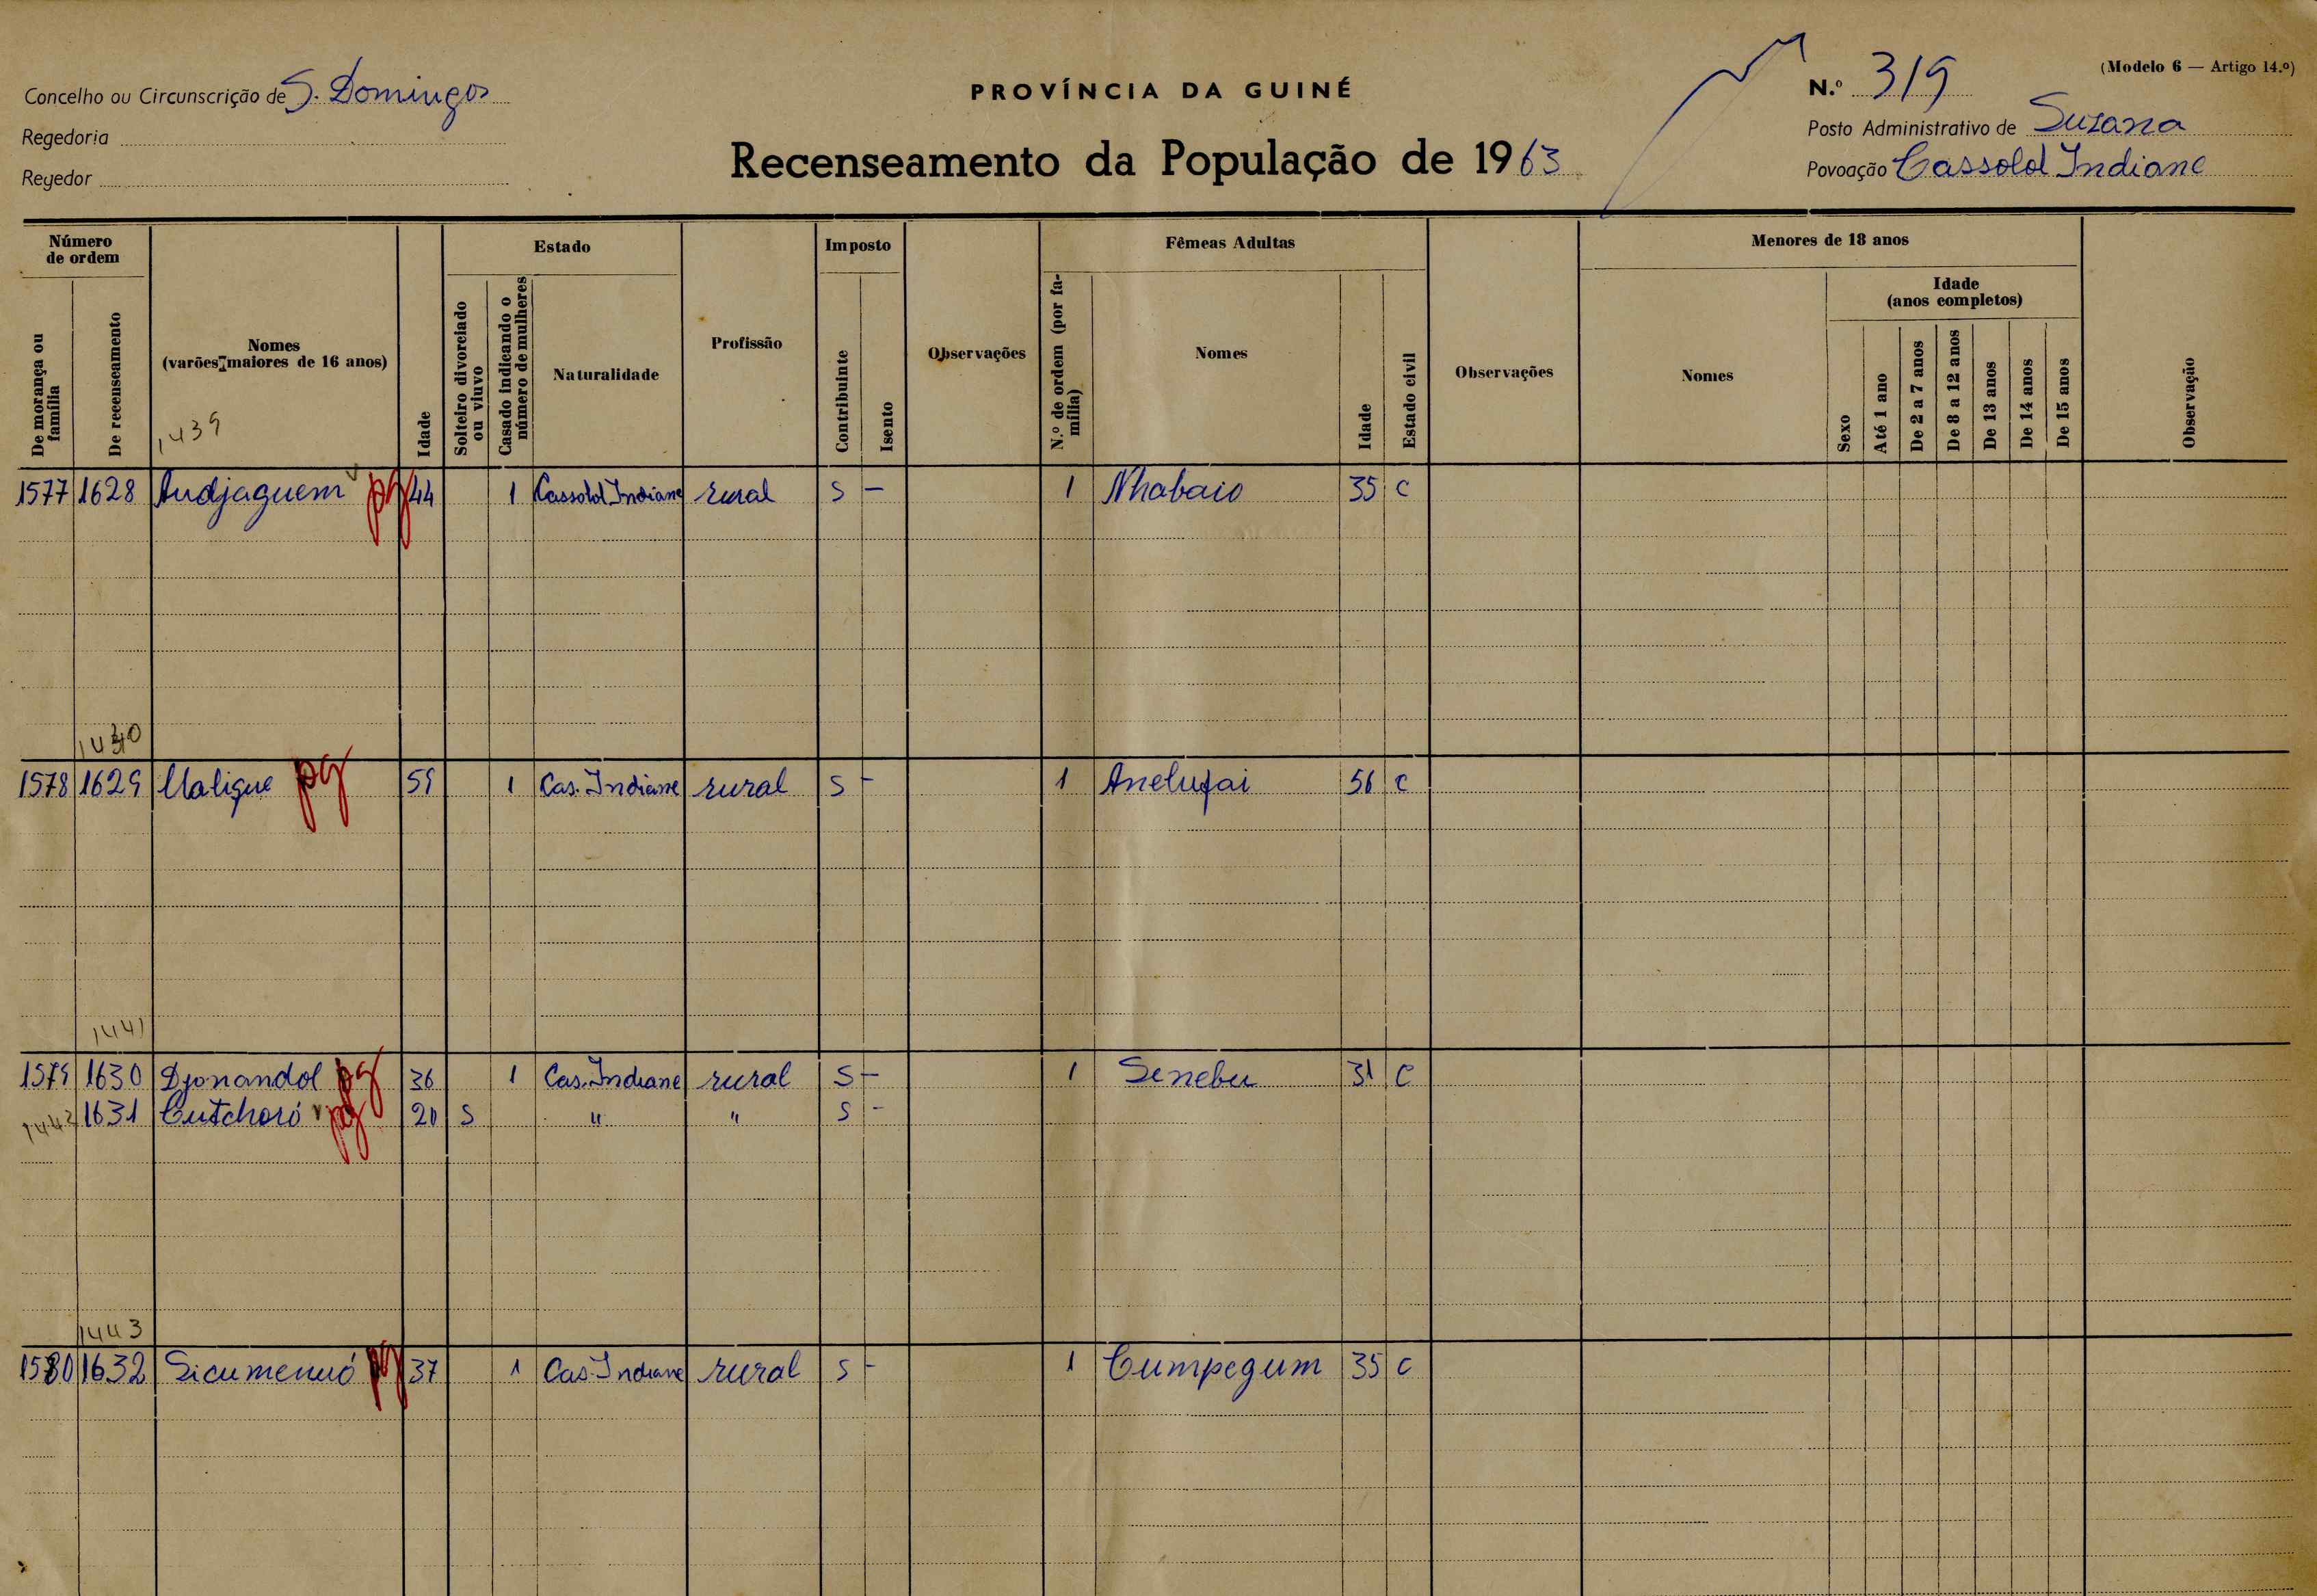 (Modelo 6 — Artigo 14.º)
Concelho ou Circunscrição de S. Domingos
PROVÍNCIA DA GUINÉ
N.º 319
Regedoria
Posto Administrativo de Suzana
Recenseamento da População de 1963
Regedor
Povoação Cassolol Indiane
Número de ordem
Estado
Imposto
Fêmeas Adultas
Menores de 18 anos
De morança ou família
De recenseamento
Nomes
(varões maiores de 16 anos)
Idade
Solteiro divorciado ou viuvo
Casado indicando o número de mulheres
Naturalidade
Profissão
Contribuinte
Isento
Observações
N.º de ordem (por família)
Nomes
Idade
Estado civil
Observações
Nomes
Sexo
Idade
(anos completos)
Até 1 ano
De 2 a 7 anos
De 8 a 12 anos
De 13 anos
De 14 anos
De 15 anos
Observação
1439
1577 1628 Audjaguem pg 44 1 Cassolol Indiane rural S — 1 Nhabaio 35 C
1440
1578 1629 Ualigue pg 59 1 Cas. Indiane rural S - 1 Anelufai 56 C
1441
1579 1630 Djonandol pg 36 1 Cas. Indiane rural S — 1 Senebu 31 C
1442 1631 Cutchoró pg 20 S " " S -
1443
1580 1632 Sicumenuó pg 37 1 Cas. Indiane rural S - 1 Cumpegum 35 C